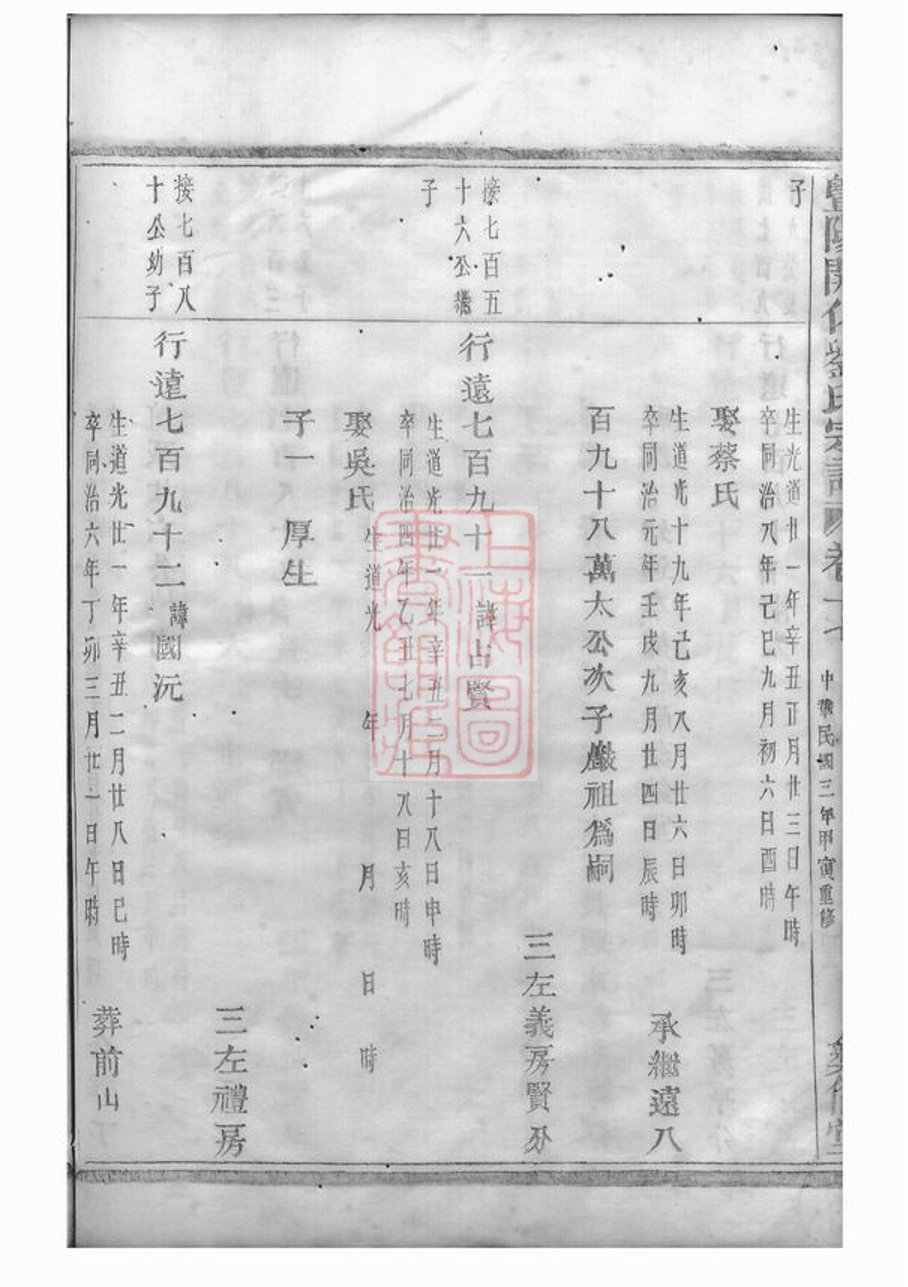 暨陽開化劉氏宗譜 卷十七 中華民國三年甲寅重修
子
生光道廿一年辛丑正月廿三日午時
卒同治八年己巳九月初六日酉時
娶蔡氏
生道光十九年己亥八月廿六日卯時
卒同治元年壬戌九月廿四日辰時
承繼遠八
百九十八萬太公次子巖祖爲嗣
三左義房賢分
接七百五
十六公繼
子
行遠七百九十一 諱占賢
生道光廿一年辛丑二月十八日申時
卒同治四年乙丑七月十八日亥時
娶吳氏 生道光 年 月 日 時
子一 厚生
三左禮房
接七百八
十公幼子
行遠七百九十二 諱國沅
生道光廿一年辛丑二月廿八日巳時
卒同治六年丁卯三月廿一日午時
葬前山
上海圖書館藏